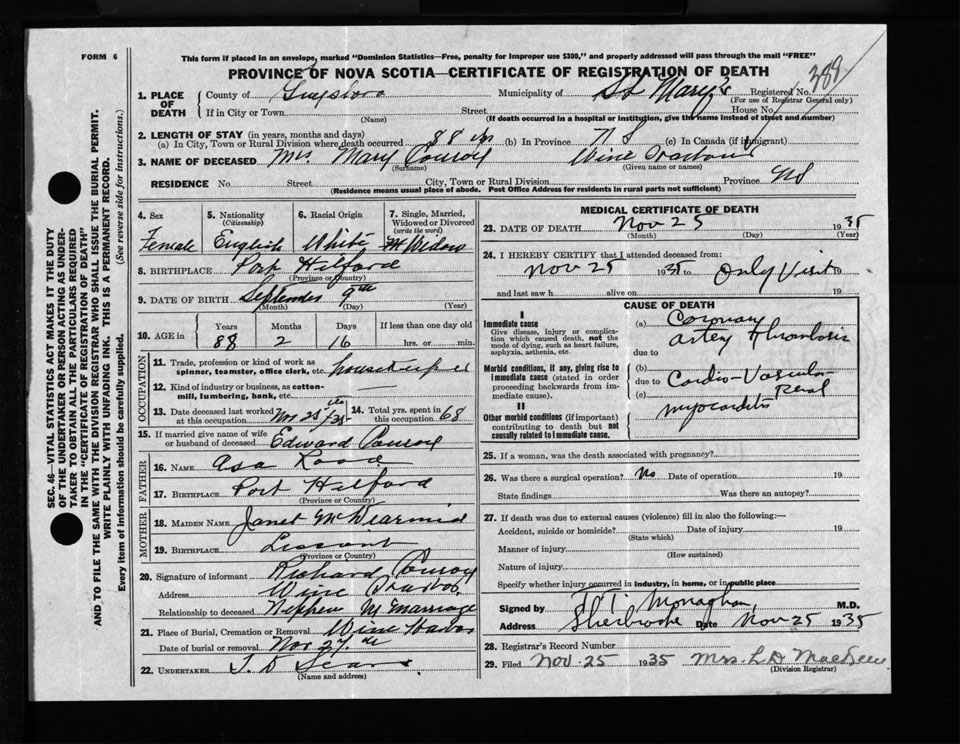 FORM 6
This form if placed in an envelope, marked "Dominion Statistics—Free, penalty for improper use $300," and properly addressed will pass through the mail "FREE"
PROVINCE OF NOVA SCOTIA—CERTIFICATE OF REGISTRATION OF DEATH
389
1. PLACE OF DEATH
County of Municipality of St Mary's Registered No.
(For use of Registrar General only)
If in City or Town Street House No.
(Name) (If death occurred in a hospital or institution, give the name instead of street and number)
2. LENGTH OF STAY (in years, months and days)
(a) In City, Town or Rural Division where death occurred 88 yrs (b) In Province N S (c) In Canada (if immigrant)
3. NAME OF DECEASED Mrs. Mary Conroy Wine Harbour
(Surname) (Given name or names)
RESIDENCE No. Street City, Town or Rural Division Province NS
(Residence means usual place of abode. Post Office Address for residents in rural parts not sufficient)
4. Sex Female
5. Nationality (Citizenship) English
6. Racial Origin White
7. Single, Married, Widowed or Divorced (write the word) Widow
8. BIRTHPLACE Port Hilford
(Province or Country)
9. DATE OF BIRTH September 9th
(Month) (Day) (Year)
10. AGE in Years Months Days If less than one day old
88 2 16 hrs. or min.
OCCUPATION
11. Trade, profession or kind of work as spinner, teamster, office clerk, etc. housekeeper
12. Kind of industry or business, as cotton-mill, lumbering, bank, etc.
13. Date deceased last worked at this occupation Nov 25 /35
14. Total yrs. spent in this occupation 68
15. If married give name of wife or husband of deceased Edward Conroy
FATHER
16. NAME Asa Rood
17. BIRTHPLACE Port Hilford
(Province or Country)
MOTHER
18. MAIDEN NAME Janet McDearmid
19. BIRTHPLACE
(Province or Country)
20. Signature of informant Richard Conroy
Address Wine Harbor
Relationship to deceased Nephew by Marriage
21. Place of Burial, Cremation or Removal Wine Harbor
Date of burial or removal Nov 27th
22. UNDERTAKER
(Name and address)
MEDICAL CERTIFICATE OF DEATH
23. DATE OF DEATH Nov 25 1935
(Month) (Day) (Year)
24. I HEREBY CERTIFY that I attended deceased from:
Nov 25 1935 to Only Visit 19
and last saw h alive on 19
CAUSE OF DEATH
I
Immediate cause
Give disease, injury or complication which caused death, not the mode of dying, such as heart failure, asphyxia, asthenia, etc.
(a) Coronary artery thrombosis
due to
Morbid conditions, if any, giving rise to immediate cause (stated in order proceeding backwards from immediate cause).
(b)
due to Cardio-Vascular-Renal
(c)
myocarditis
II
Other morbid conditions (if important) contributing to death but not causally related to immediate cause.
25. If a woman, was the death associated with pregnancy?
26. Was there a surgical operation? No Date of operation 19
State findings Was there an autopsy?
27. If death was due to external causes (violence) fill in also the following:—
Accident, suicide or homicide? Date of injury 19
(State which)
Manner of injury
(How sustained)
Nature of injury
Specify whether injury occurred in industry, in home, or in public place
Signed by Monaghan M.D.
Address Sherbrooke Date Nov 25 1935
28. Registrar's Record Number
29. Filed Nov. 25 1935 Mrs. L D
(Division Registrar)
SEC. 46—VITAL STATISTICS ACT MAKES IT THE DUTY
OF THE UNDERTAKER OR PERSON ACTING AS UNDER-
TAKER TO OBTAIN ALL THE PARTICULARS REQUIRED
IN THE "CERTIFICATE OF REGISTRATION OF DEATH"
AND TO FILE THE SAME WITH THE DIVISION REGISTRAR WHO SHALL ISSUE THE BURIAL PERMIT.
WRITE PLAINLY WITH UNFADING INK. THIS IS A PERMANENT RECORD.
Every item of information should be carefully supplied. (See reverse side for instructions.)